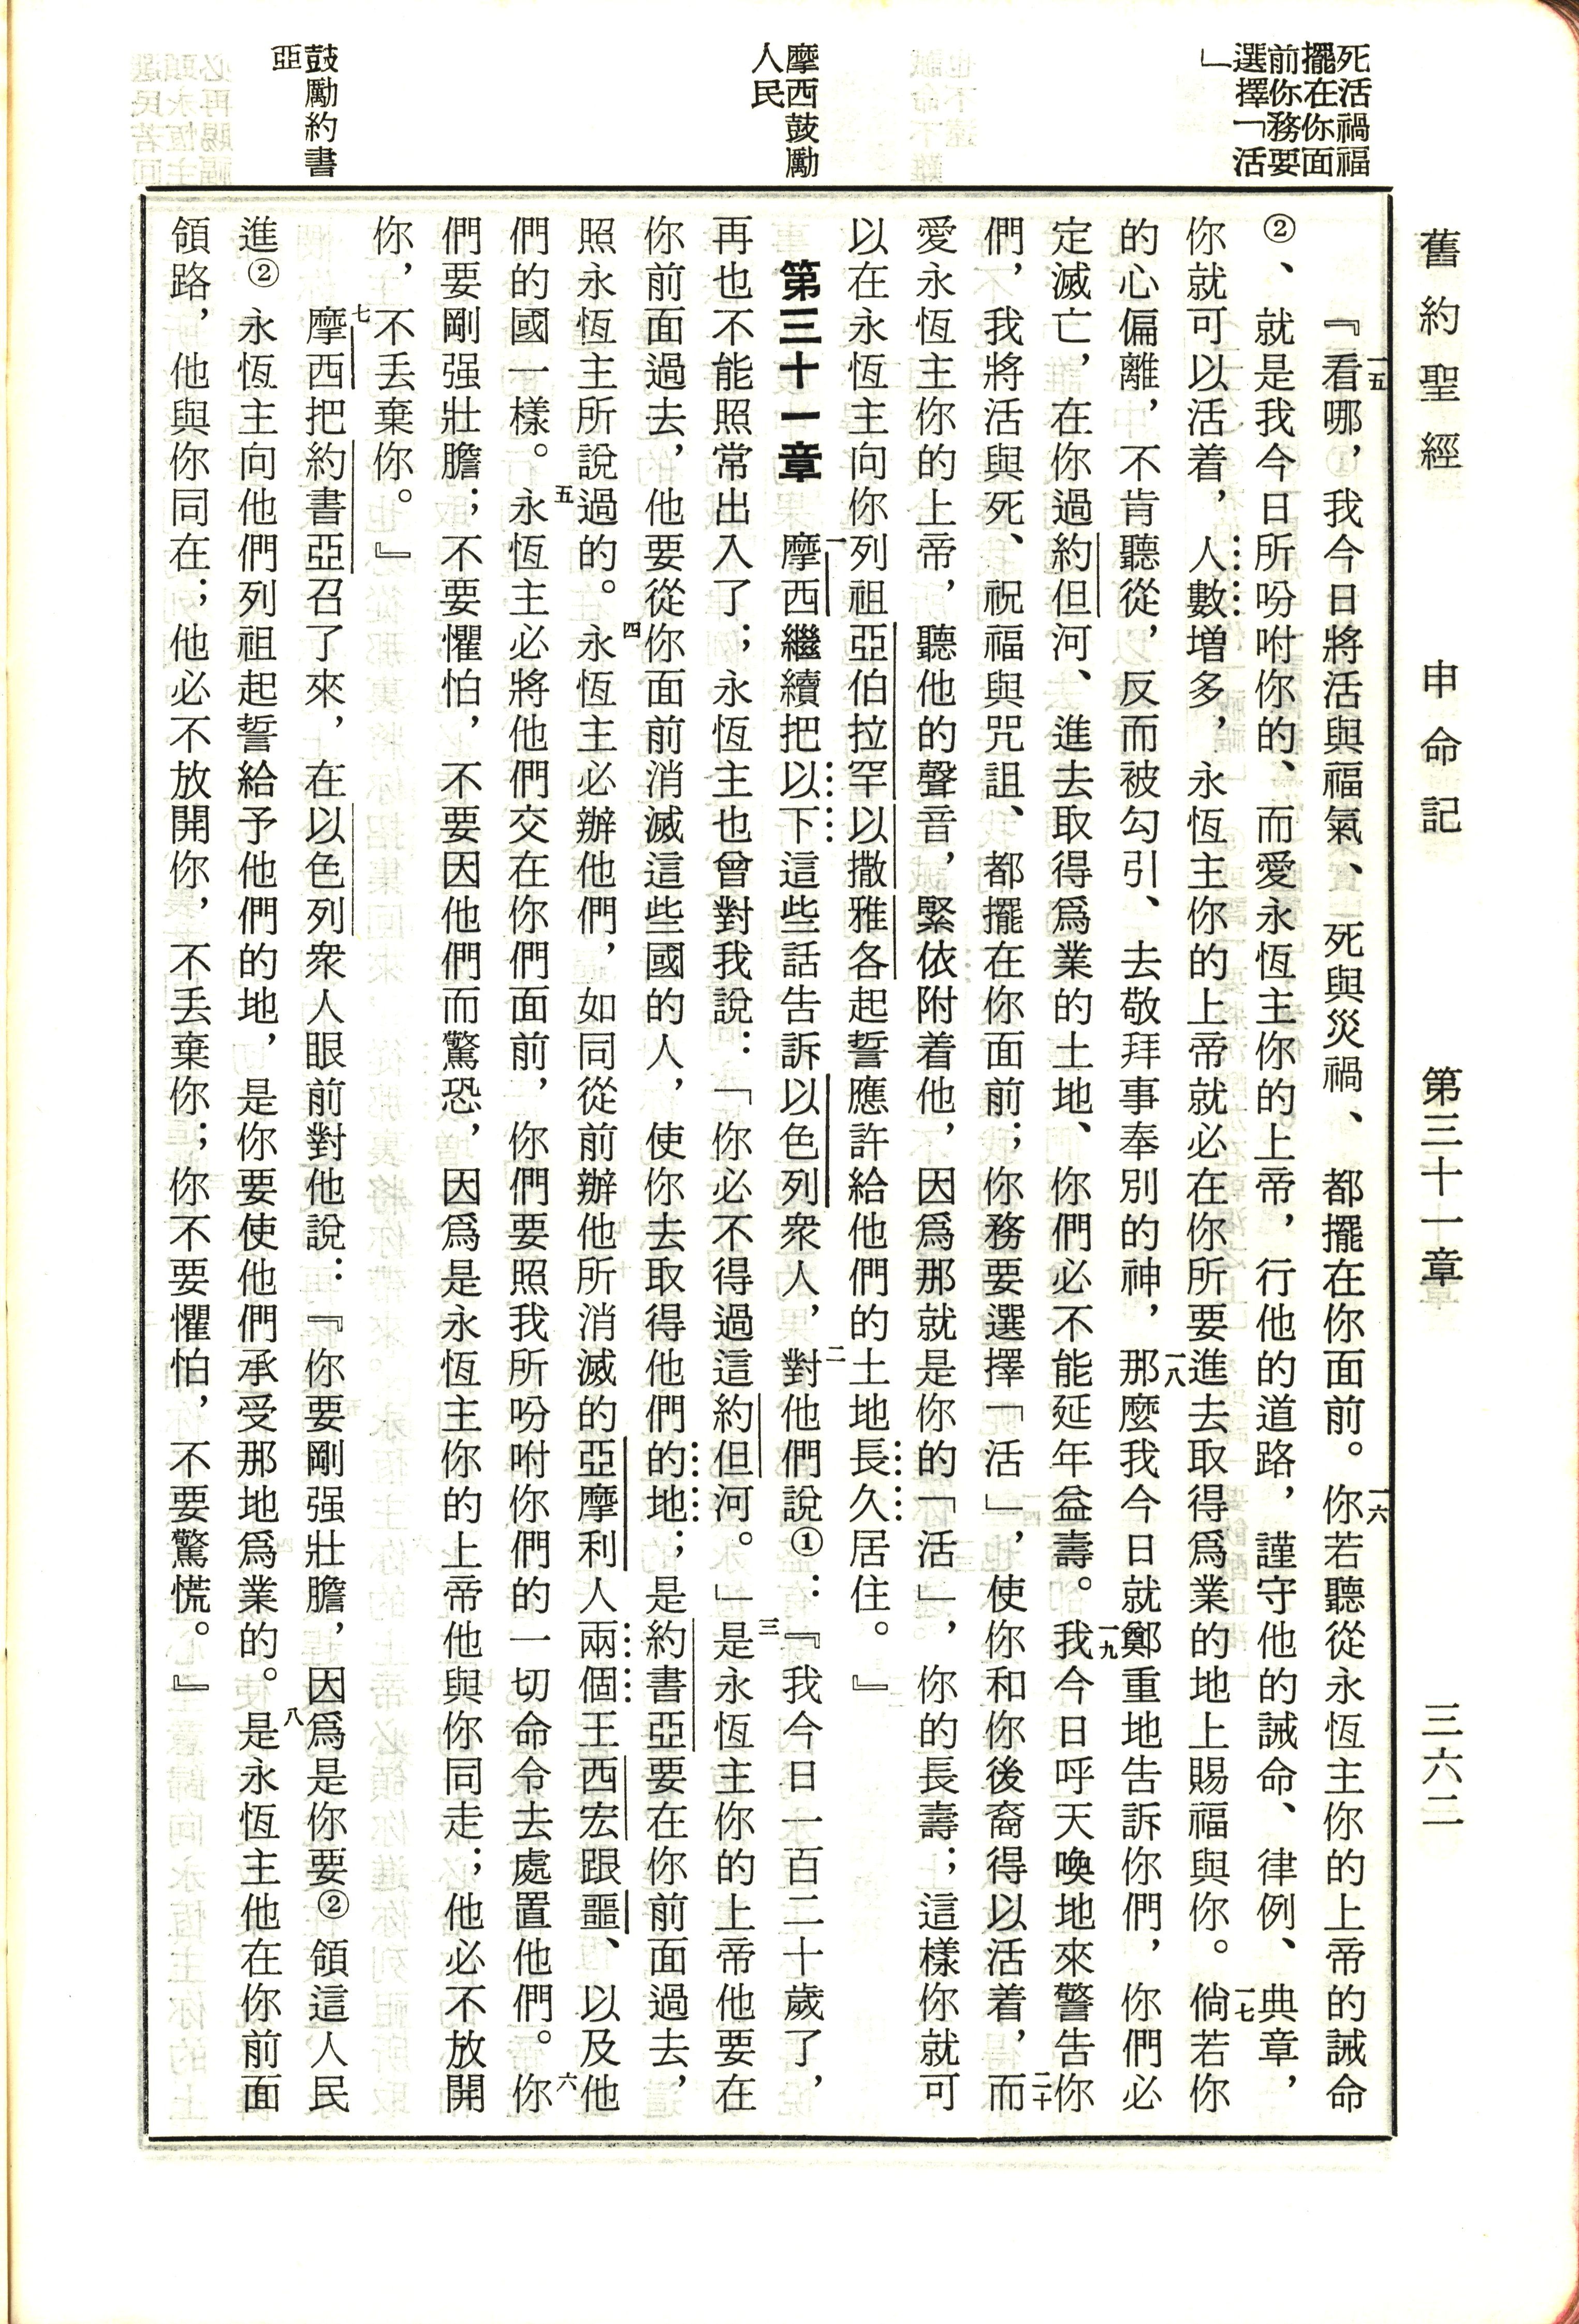 舊約聖經　申命記　第三十一章　三六二
死活禍福
擺在你面
前你務要
選擇「活
」
摩西鼓勵
人民
鼓勵約書
亞
『一五看哪，我今日將活與福氣、死與災禍、都擺在你面前。一六你若聽從永恆主你的上帝的誡命
②、就是我今日所吩咐你的、而愛永恆主你的上帝，行他的道路，謹守他的誡命、律例、典章，
你就可以活着，人數增多，永恆主你的上帝就必在你所要進去取得爲業的地上賜福與你。一七倘若你
的心偏離，不肯聽從，反而被勾引、去敬拜事奉別的神，一八那麼我今日就鄭重地告訴你們，你們必
定滅亡，在你過約但河、進去取得爲業的土地、你們必不能延年益壽。一九我今日呼天喚地來警告你
們，我將活與死、祝福與咒詛、都擺在你面前；你務要選擇「活」，使你和你後裔得以活着，二十而
愛永恆主你的上帝，聽他的聲音，緊依附着他，因爲那就是你的「活」，你的長壽；這樣你就可
以在永恆主向你列祖亞伯拉罕以撒雅各起誓應許給他們的土地長久居住。』
第三十一章　一摩西繼續把以下這些話告訴以色列衆人，二對他們說①：『我今日一百二十歲了，
再也不能照常出入了；永恆主也曾對我說：「你必不得過這約但河。」三是永恆主你的上帝他要在
你前面過去，他要從你面前消滅這些國的人，使你去取得他們的地；是約書亞要在你前面過去，
照永恆主所說過的。四永恆主必辦他們，如同從前辦他所消滅的亞摩利人兩個王西宏跟噩、以及他
們的國一樣。五永恆主必將他們交在你們面前，你們要照我所吩咐你們的一切命令去處置他們。六你
們要剛强壯膽；不要懼怕，不要因他們而驚恐，因爲是永恆主你的上帝他與你同走；他必不放開
你，不丟棄你。』
七摩西把約書亞召了來，在以色列衆人眼前對他說：『你要剛强壯膽，因爲是你要②領這人民
進②永恆主向他們列祖起誓給予他們的地，是你要使他們承受那地爲業的。八是永恆主他在你前面
領路，他與你同在；他必不放開你，不丟棄你；你不要懼怕，不要驚慌。』